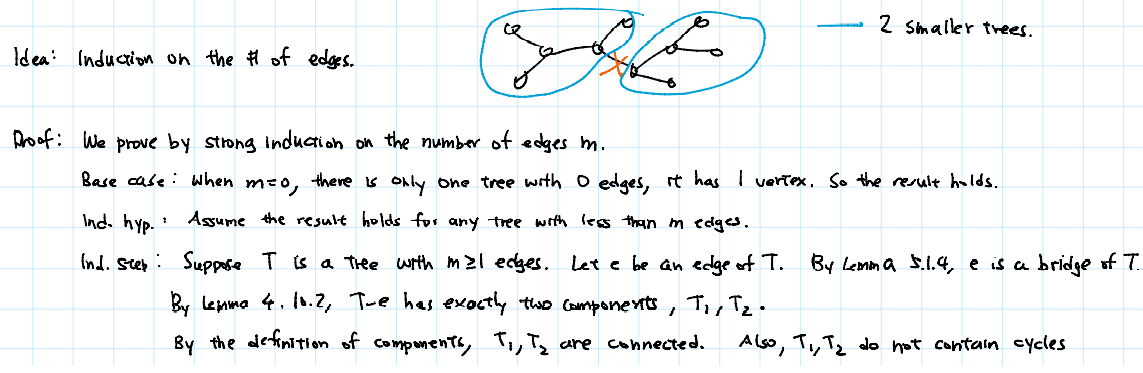 2 smaller trees.
Idea: Induction on the # of edges.
Proof: We prove by strong induction on the number of edges m.
Base case: When m=0, there is only one tree with 0 edges, it has 1 vertex. So the result holds.
Ind. hyp.: Assume the result holds for any tree with less than m edges.
Ind. step: Suppose T is a tree with m≥1 edges. Let e be an edge of T. By Lemma 5.1.4, e is a bridge of T.
By Lemma 4.10.2, T-e has exactly two components, T₁, T₂.
By the definition of components, T₁, T₂ are connected. Also, T₁, T₂ do not contain cycles